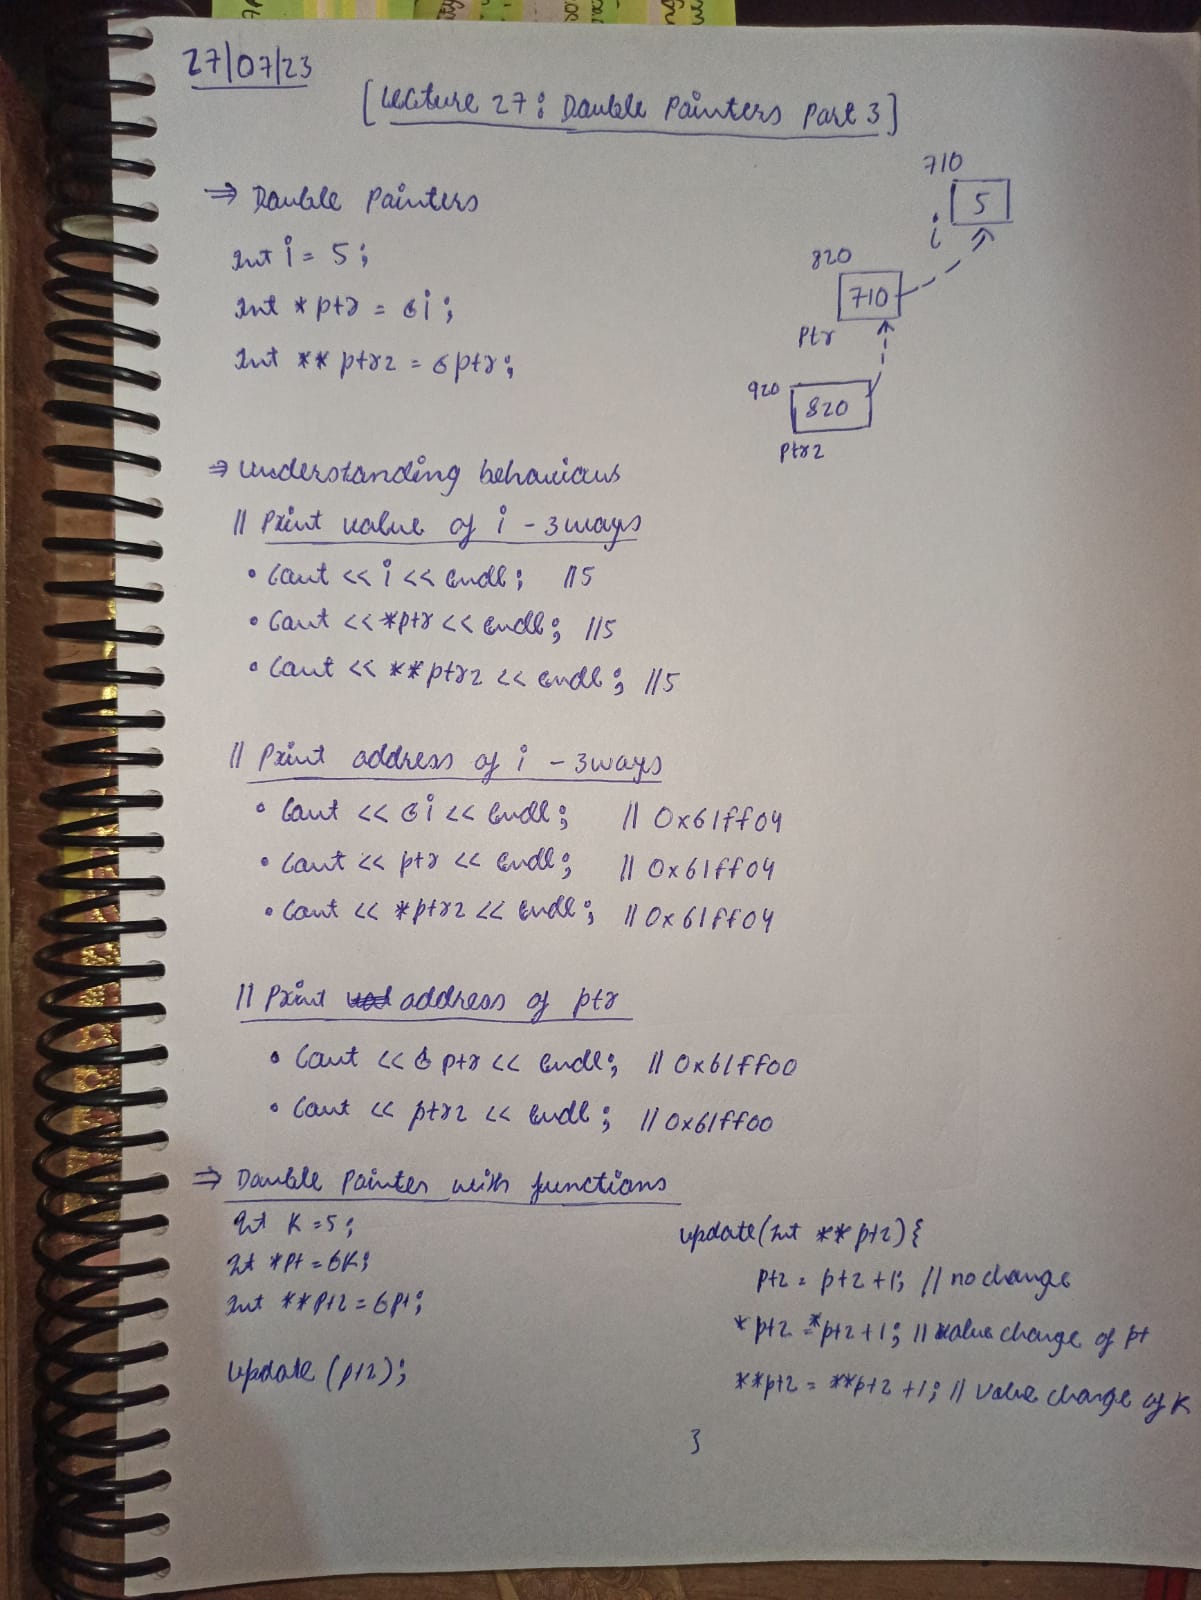 27/07/23
[Lecture 27: Double Pointers Part 3]
⇒ Double Pointers
int i = 5;
int *ptr = &i;
int **ptr2 = &ptr;
710
5
i
820
710
ptr
920
820
ptr2
⇒ Understanding behaviours
// Print value of i - 3 ways
• Cout << i << endl; //5
• Cout << *ptr << endl; //5
• Cout << **ptr2 << endl; //5
// Print address of i - 3 ways
• Cout << &i << endl; // 0x61ff04
• Cout << ptr << endl; // 0x61ff04
• Cout << *ptr2 << endl; // 0x61ff04
// Print address of ptr
• Cout << &ptr << endl; // 0x61ff00
• Cout << ptr2 << endl; // 0x61ff00
⇒ Double Pointer with functions
int K = 5;
int *pt = &K;
int **pt2 = &pt;
update (pt2);
update (int **pt2) {
pt2 = pt2 + 1; // no change
*pt2 = *pt2 + 1; // value change of pt
**pt2 = **pt2 + 1; // value change of K
}